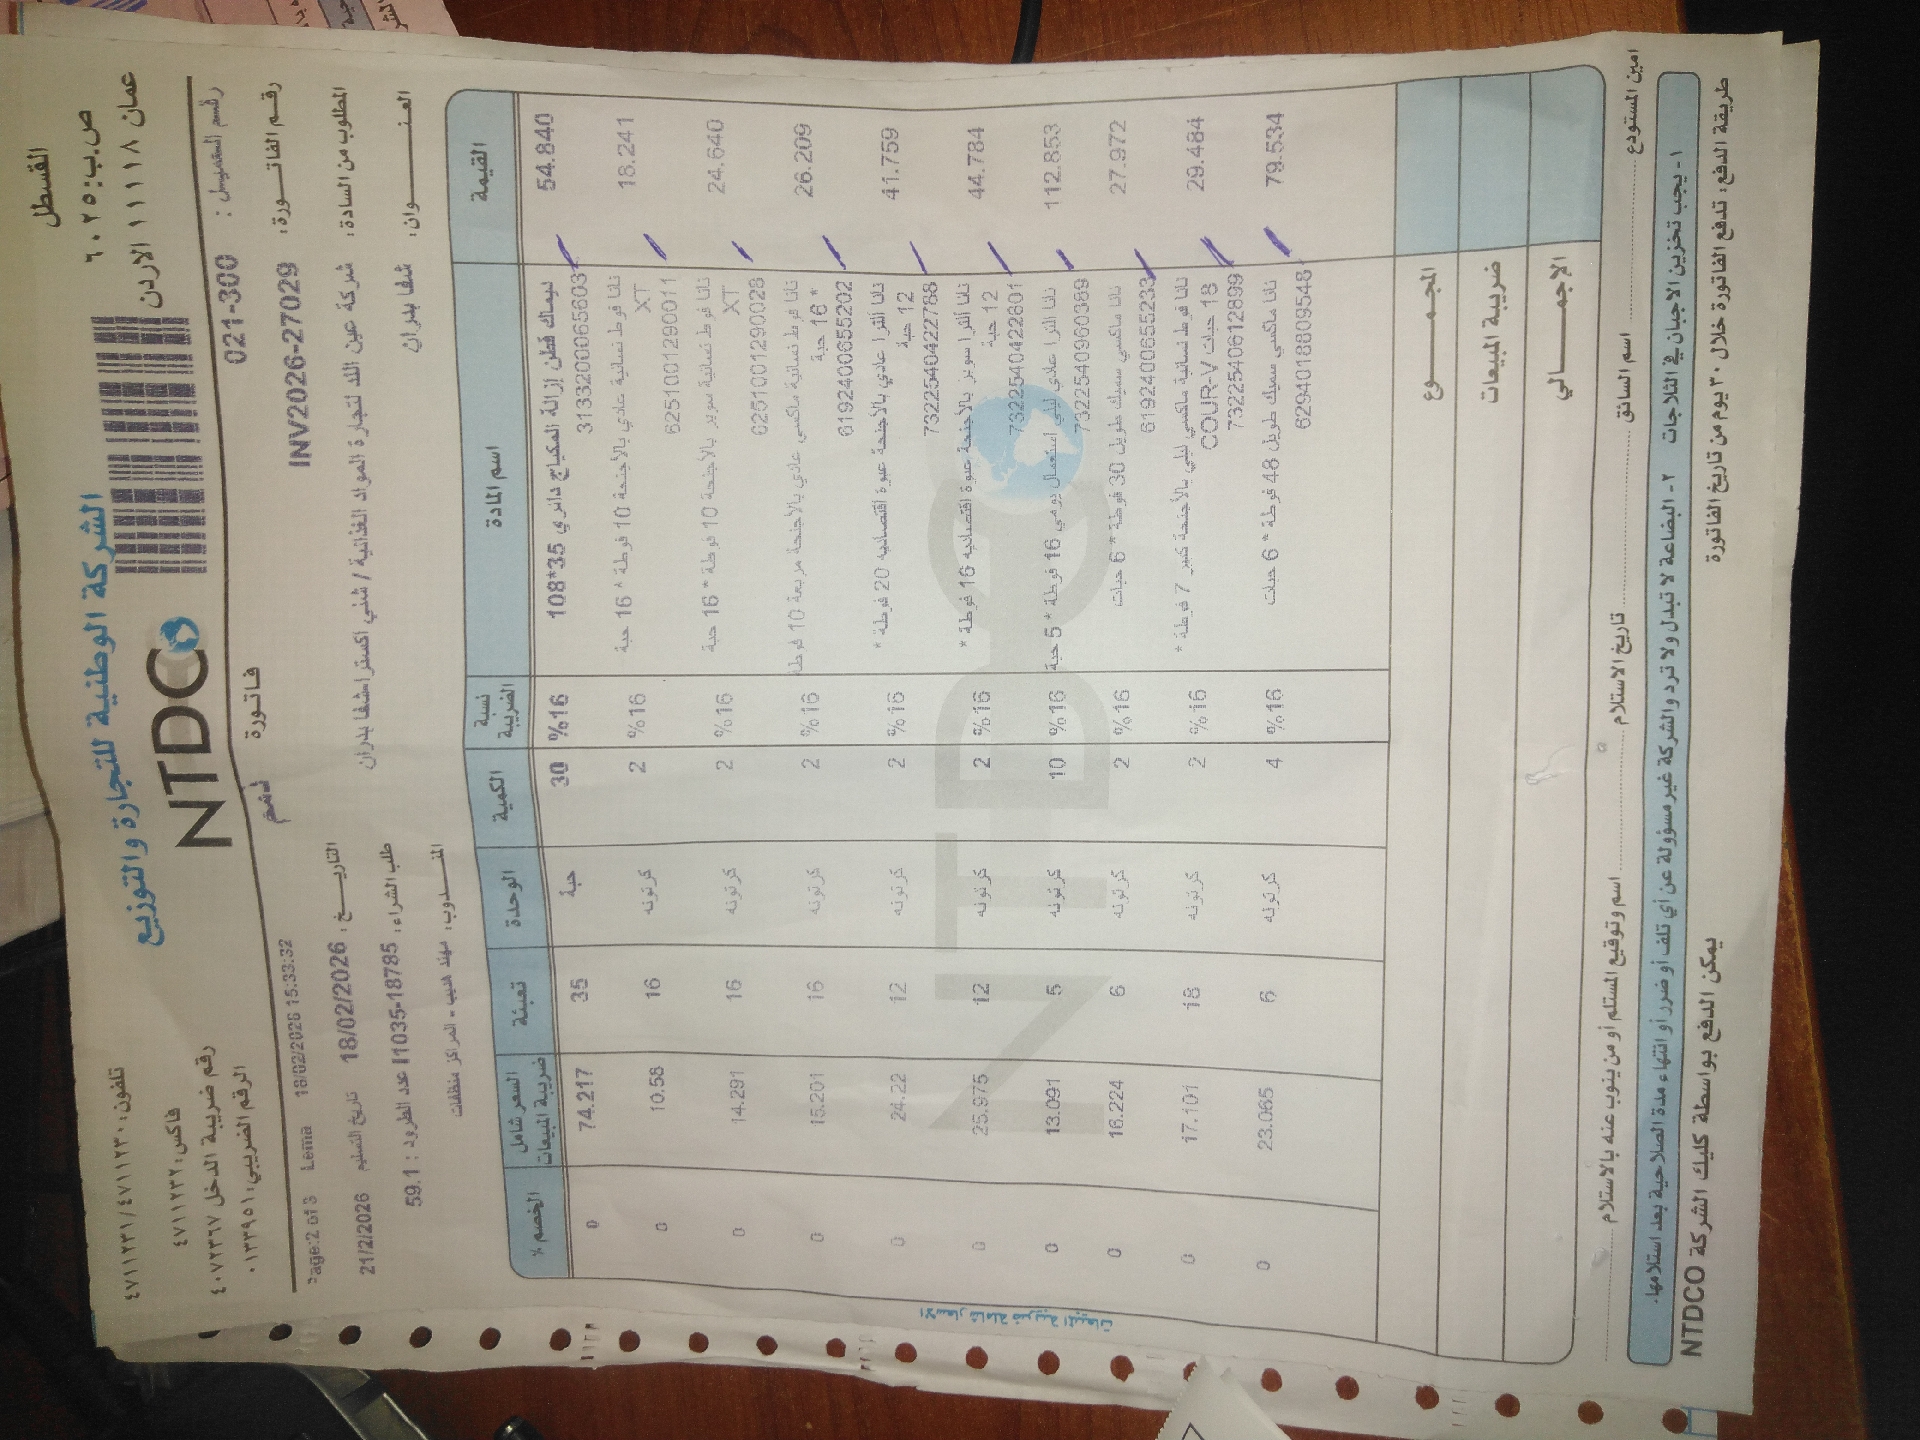 الشركة الوطنية للتجارة والتوزيع
NTDCO
القسطل
ص.ب: ٦٠٢٥
عمان ١١١١٨ الاردن
تلفون: ٤٧١١٢٣٠ / ٤٧١١٢٣١
فاكس: ٤٧١١٢٣٢
رقم ضريبة الدخل ٤٠٧٢٣٦٧
الرقم الضريبي: ٠١٣٣٩٥١
رقم العميل: 021-300
فاتورة
ذمم
age:2 of 3 Lema 18/02/2026 15:33:32
رقم الفاتورة: INV2026-27029
التاريخ: 18/02/2026 تاريخ التسليم 21/2/2026
المطلوب من السادة: شركة عين اللد لتجارة المواد الغذائية / شني اكسترا شفا بدران
طلب الشراء: I1035-18785 عدد الطرود: 59.1
العنوان: شفا بدران
المندوب: مهند هديب - المراكز منظفات
القيمة اسم المادة نسبة الضريبة الكمية الوحدة تعبئة السعر شامل ضريبة المبيعات الخصم %
54.840 ديوماك قطن إزالة المكياج دائري 35*108 %16 30 حبة 35 74.217 0
3133200065603
18.241 نانا فوطة نسائية عادي بالأجنحة 10 فوطة * 16 حبة %16 2 كرتونه 16 10.58 0
XT
6251001290011
24.640 نانا فوطة نسائية سوبر بالأجنحة 10 فوطة * 16 حبة %16 2 كرتونه 16 14.291 0
XT
6251001290028
26.209 نانا فوطة نسائية ماكسي عادي بالأجنحة مربعة 10 فوطة %16 2 كرتونه 16 15.201 0
* 16 حبة
6192400655202
41.759 نانا الترا عادي بالأجنحة عبوة اقتصاديه 20 فوطة * %16 2 كرتونه 12 24.22 0
12 حبة
7322540422788
44.784 نانا الترا سوبر بالأجنحة عبوة اقتصاديه 16 فوطة * %16 2 كرتونه 12 25.975 0
12 حبة
7322540422801
112.853 نانا الترا عادي ليلي استعمال يومي 16 فوطة * 5 حبة %16 10 كرتونه 5 13.091 0
7322540960389
27.972 نانا ماكسي سميك طويل 30 فوطة * 6 حبات %16 2 كرتونه 6 16.224 0
6192400655233
29.484 نانا فوطة نسائية ماكسي ليلي بالأجنحة كبير 7 فوطة * %16 2 كرتونه 18 17.101 0
18 حبات COUR-V
7322540612899
79.534 نانا ماكسي سميك طويل 48 فوطة * 6 حبات %16 4 كرتونه 6 23.065 0
6294018809548
الاسعار شاملة ضريبة المبيعات
المجموع
ضريبة المبيعات
الاجمالي
امين المستودع اسم السائق تاريخ الاستلام اسم وتوقيع المستلم أو من ينوب عنه بالاستلام
١- يجب تخزين الاجبان في الثلاجات ٢- البضاعة لا تبدل ولا ترد والشركة غير مسؤولة عن أي تلف أو ضرر أو انتهاء مدة الصلاحية بعد استلامها.
طريقة الدفع: تدفع الفاتورة خلال ٣٠ يوم من تاريخ الفاتورة يمكن الدفع بواسطة كليك الشركة NTDCO